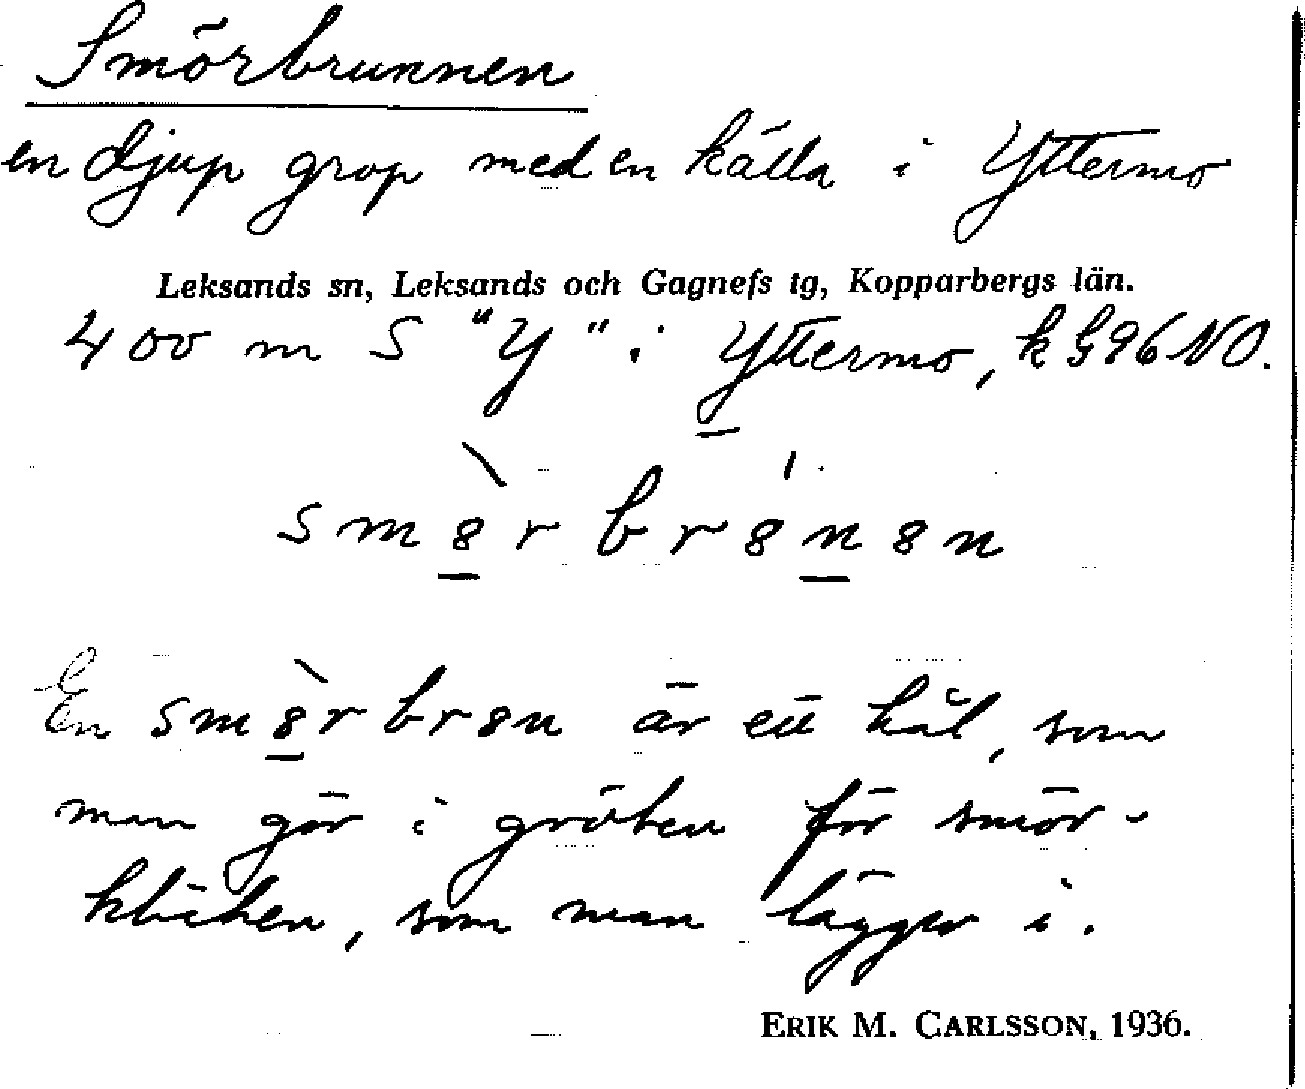 Smörbrunnen
en djup grop med en källa i Yttermo
Leksands sn, Leksands och Gagnefs tg, Kopparbergs län.
400 m S "Y" i Yttermo, k G96 NO.
smè̱rbrɵ́n̲ɵn
En smɵ̱̀rbrɵn är ett hål, som
man gör i gröten för smör-
klicken, som man lägger i.
ERIK M. CARLSSON, 1936.